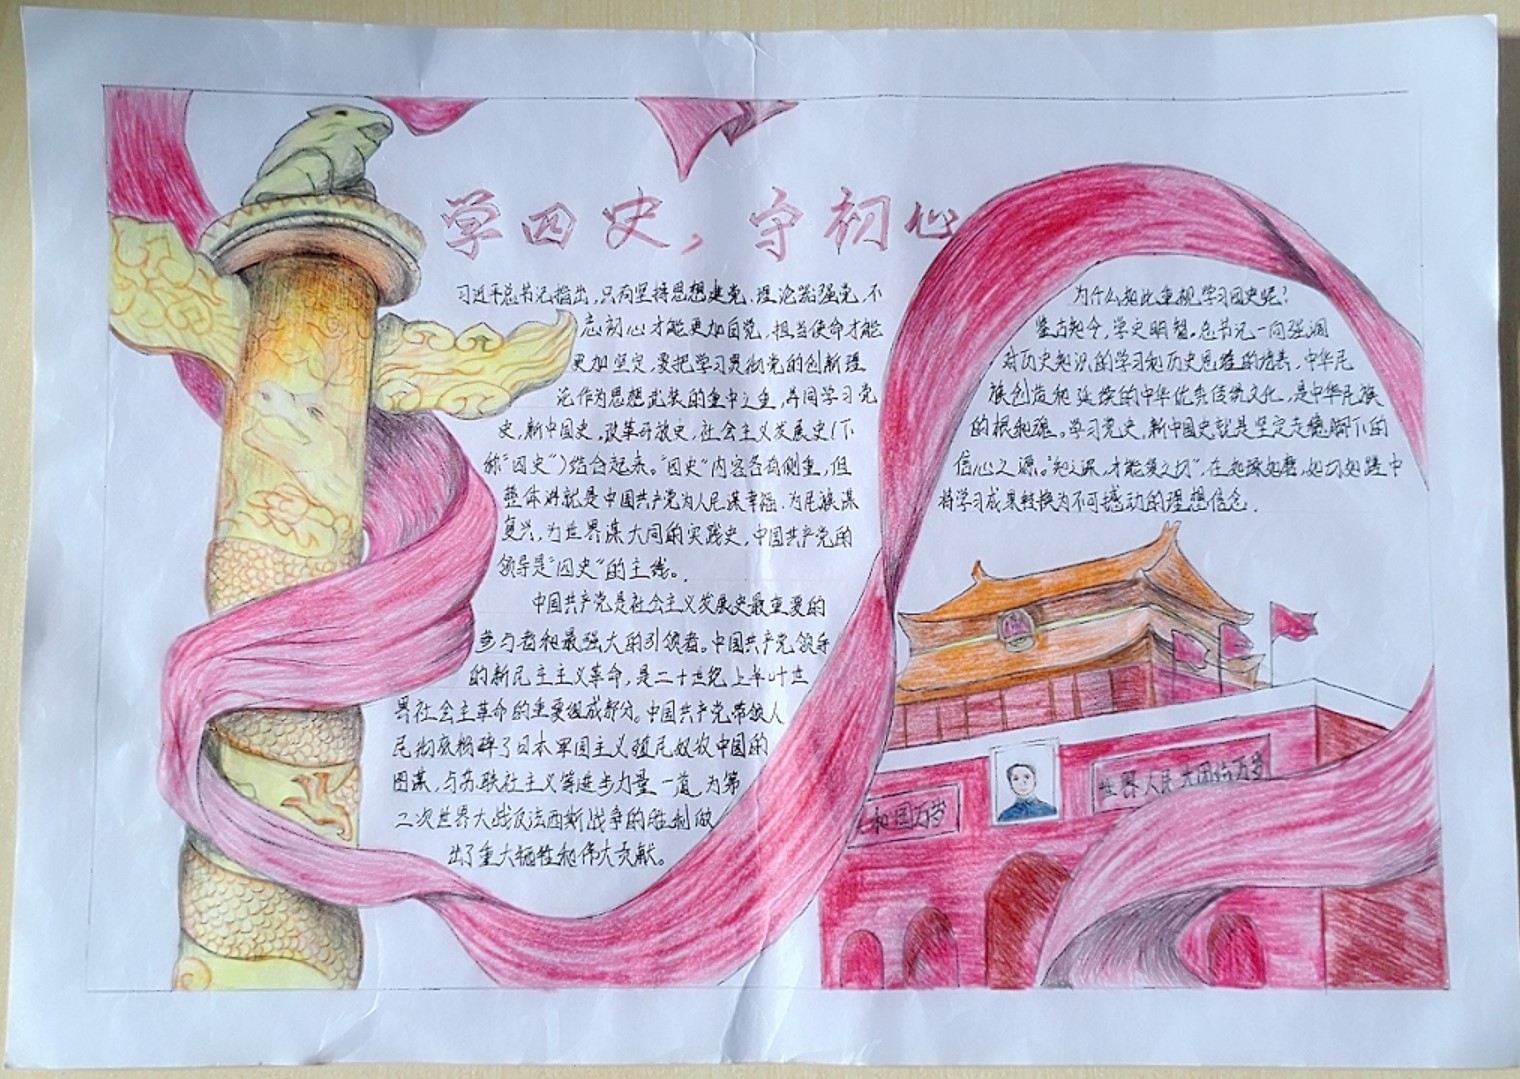 学四史，守初心
习近平总书记指出，只有坚持思想建党、理论强党，不
忘初心才能更加自觉，担当使命才能
更加坚定，要把学习贯彻党的创新理
论作为思想武装的重中之重，并同学习党
史，新中国史，改革开放史，社会主义发展史（下
称“四史”）结合起来。“四史”内容各有侧重，但
整体讲就是中国共产党为人民谋幸福、为民族谋
复兴，为世界谋大同的实践史，中国共产党的
领导是“四史”的主线。
中国共产党是社会主义发展史最重要的
参与者和最强大的引领者。中国共产党领导
的新民主主义革命，是二十世纪上半叶世
界社会主革命的重要组成部分。中国共产党带领人
民彻底粉碎了日本军国主义殖民奴役中国的
图谋，与苏联社主义等进步力量一道，为第
二次世界大战反法西斯战争的胜利做
出了重大牺牲和伟大贡献。
为什么如此重视学习四史呢？
鉴古知今，学史明智。总书记一向强调
对历史知识的学习和历史思维的培养，中华民
族创造和延续的中华优秀传统文化，是中华民族
的根和魂。学习党史，新中国史就是坚定走稳脚下的
信心之源。“知之深，才能爱之切”，在如琢如磨，如切如磋中
将学习成果转换为不可撼动的理想信念．
和国万岁
世界人民大团结万岁